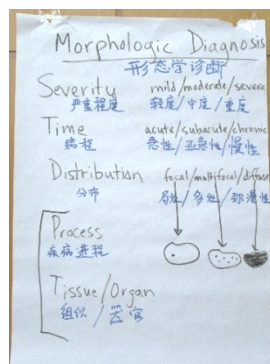 Morphologic Diagnosis
形态学诊断
Severity mild/moderate/severe
严重程度 轻度/中度/重度
Time acute/subacute/chronic
病程 急性/亚急性/慢性
Distribution focal/multifocal/diffuse
分布 局灶/多灶/弥漫性
Process
疾病进程
Tissue/Organ
组织/器官